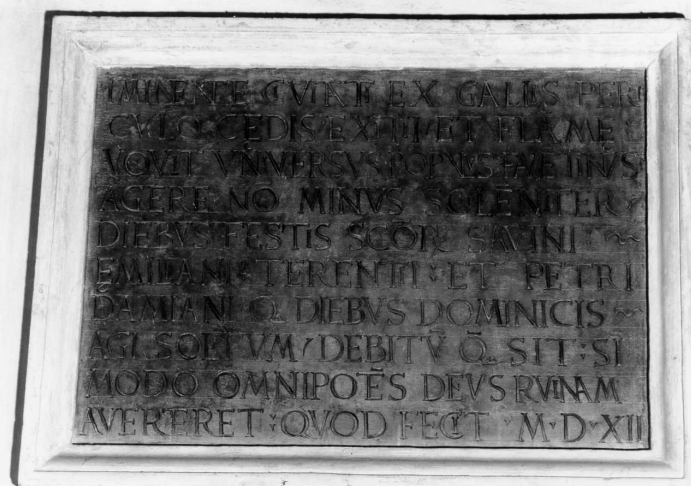 IMINENTE CVITATI EX GALLIS PERI
CVLO CEDIS EXITII ET FLAME
VOVIT VNIVERSVS POPVLVS FAVETINVS
AGERE NO MINVS SOLENITER
DIEBVS FESTIS SCOR SAVINI
EMILIANI TERENTI ET PETRI
DAMIANI Q̄ DIEBVS DOMINICIS
AGI SOLITVM DEBITV̄ Q̄ SIT SI
MODO OMNIPOĒS DEVS RVINAM
AVERTERET QVOD FECIT M D XII